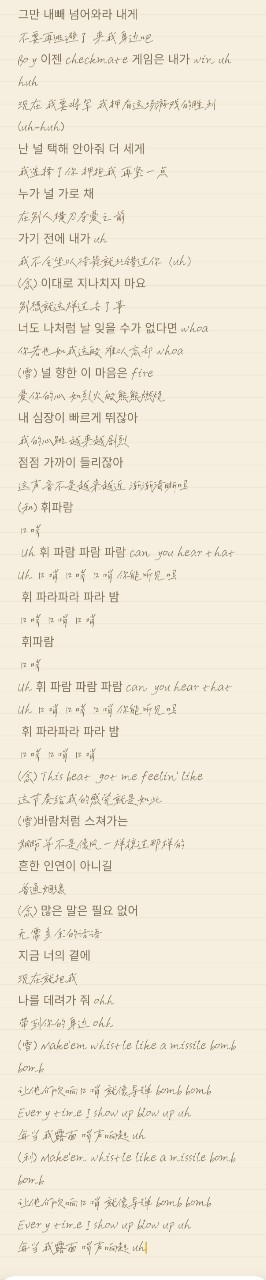 그만 내빼 넘어와라 내게
不要再逃避了 来我身边吧
Boy 이젠 checkmate 게임은 내가 win uh
huh
现在 我要将军 我拥有这场游戏的胜利
(uh-huh)
난 널 택해 안아줘 더 세게
我选择了你 拥抱我 再紧一点
누가 널 가로 채
在别人横刀夺爱之前
가기 전에 내가 uh
我不会坐以待毙就此错过你 (uh)
이대로 지나치지 마요
别想就这样过去了事
너도 나처럼 날 잊을 수가 없다면 whoa
你若也如我这般 难以忘却 whoa
(雪) 널 향한 이 마음은 fire
爱你的心 如烈火般熊熊燃烧
내 심장이 빠르게 뛰잖아
我的心跳 越来越剧烈
점점 가까이 들리잖아
这声音不是越来越近 渐渐清晰吗
휘파람
口哨
Uh 휘 파람 파람 파람 can you hear that
Uh 口哨 口哨 口哨 你能听见吗
휘 파라파라 파라 밤
口哨 口哨 口哨
휘파람
口哨
Uh 휘 파람 파람 파람 can you hear that
Uh 口哨 口哨 口哨 你能听见吗
휘 파라파라 파라 밤
口哨 口哨 口哨
This beat got me feelin' like
这节奏给我的感觉就是如此
(雪)바람처럼 스쳐가는
烟嗬并不是像风一样掠过那样的
흔한 인연이 아니길
普通姻缘
많은 말은 필요 없어
无需多余的话语
지금 너의 곁에
现在就把我
나를 데려가 줘 ohh
带到你的身边 ohh
(雪) Make'em whistle like a missile bomb
bomb
让他们吹响口哨 就像导弹 bomb bomb
Every time I show up blow up uh
每当我露面 哨声响起 uh
Make'em whistle like a missile bomb
bomb
让他们吹响口哨 就像导弹 bomb bomb
Every time I show up blow up uh
每当我露面 哨声响起 uh